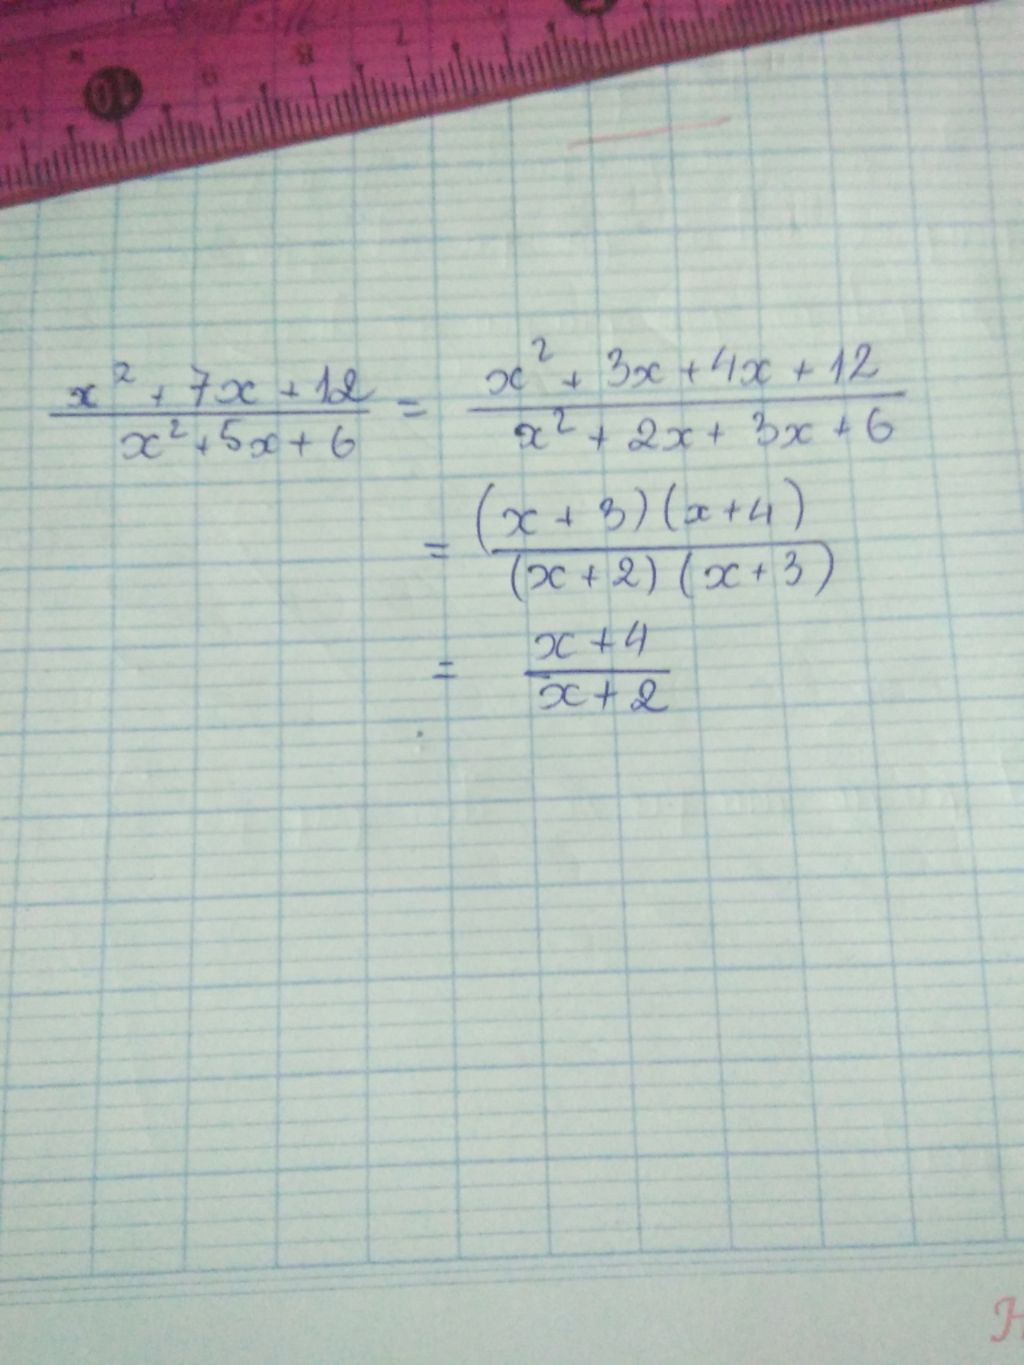 x² + 7x + 12 / x² + 5x + 6 = x² + 3x + 4x + 12 / x² + 2x + 3x + 6
= (x + 3)(x + 4) / (x + 2)(x + 3)
= x + 4 / x + 2
H